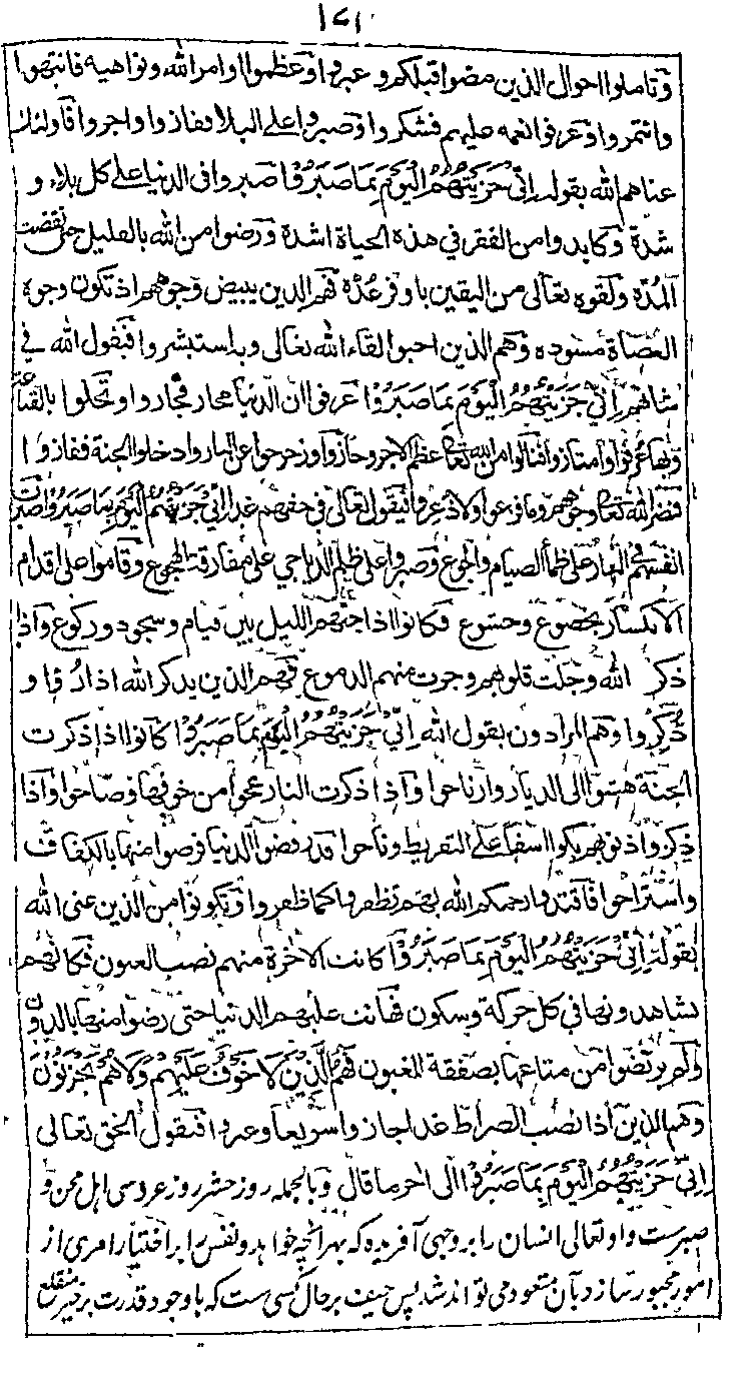 ١٧١
وتاملوا احوال الذين مضوا قبلكم وعبروا وعظموا اوامر الله ونواهيه فانتهوا
وائتمروا وعرفوا نعمه عليهم فشكروا وصبروا على البلاء ففازوا واجروا فاولئك
عناهم الله بقوله إِنِّي جَزَيْتُهُمُ الْيَوْمَ بِمَا صَبَرُوْا صبروا فى الدنيا على كل بلاء و
شدة وكابدوا من الفقر في هذه الحياة اشدة ورضوا من الله بالقليل حتى تقضت
المدة ولقوه تعالى من اليقين باوفر عُدّه فهم الذين يبيض وجوههم اذ تكون وجوه
العصاة مسوده وهم الذين احبوا لقاء الله تعالى وبه استبشروا فيقول الله في
شانهم إِنِّي جَزَيْتُهُمُ الْيَوْمَ بِمَا صَبَرُوْا عرفوا ان الدنيا مجاز فجازوا وتحلوا بالقناعة
وبها عُرفوا وامتازوا ونالوا من الله تعالى عظم الاجر وحازوا وزحزحوا عن النار وادخلوا الجنة ففازوا
فنضر الله تعالى وجوههم وما فزعوا ولا ذُعِروا فيقول تعالى في حقهم غدا إِنِّي جَزَيْتُهُمُ الْيَوْمَ بِمَا صَبَرُوْا صبرت
انفسهم في النهار على ظمأ الصيام والجوع وصبروا على ظلم الدياجي على مفارقة الهجوع وقاموا على اقدام
الانكسار بخضوع وخشوع فكانوا اذا جنهم الليل بين قيام وسجود وركوع واذا
ذكر الله وجلت قلوبهم وجرت منهم الدموع فهم الذين يذكر الله اذا و
ذُكِّروا وهم المرادون بقول الله إِنِّي جَزَيْتُهُمُ الْيَوْمَ بِمَا صَبَرُوْا كانوا اذا ذكرت
الجنة هشوا الى الديار وارتاحوا واذا ذكرت النار عجوا من خوفها وصاحوا واذا
ذكروا ذنوبهم بكوا اسفا على التفريط وناحوا قد رفضوا الدنيا فرضوا منها بالكفاف
واستراحوا فاقتدوا رحمكم الله بهم تظفروا كما ظفروا وتكونوا من الذين عنى الله
بقوله إِنِّي جَزَيْتُهُمُ الْيَوْمَ بِمَا صَبَرُوْا كانت الاخرة منهم نصب العيون فكانهم
يشاهدونها في كل حركة وسكون فهانت عليهم الدنيا حتى رضوا منها بالدون
ولم يرتضوا من متاعها بصفقة المغبون فَهُمُ الَّذِيْنَ لَا خَوْفٌ عَلَيْهِمْ وَلَا هُمْ يَحْزَنُوْنَ
وهم الذين اذا نصب الصراط غدا جازوا سريعا وعبروا فيقول الحق تعالى
اِنِّي جَزَيْتُهُمُ الْيَوْمَ بِمَا صَبَرُوْا الى اخر ما قال وبالجمله روز حشر روز عروسی اهل محن و
صبر ست واو تعالی انسان را بر وجهی آفریده که بهر آنچه خواهد و نفس را بر اختیار امری از
امور مجبور سازد بآن متعود می تواند شد پس حیف بر حال کسی ست که با وجود قدرت بر خیر